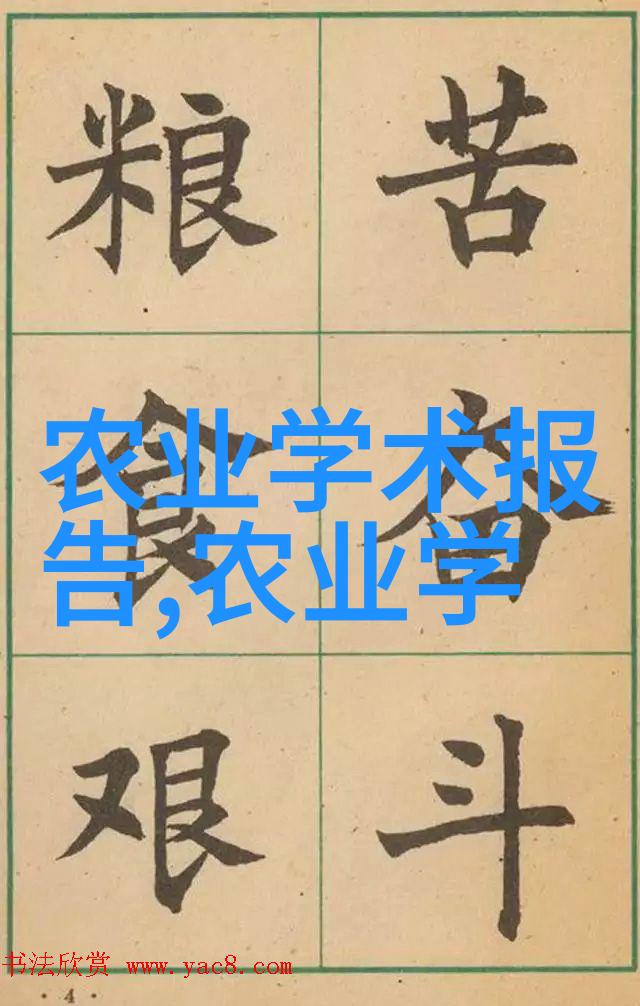 粮食艰
苦奋斗
农业学术报
告,农业学
书法欣赏 www.yac8.com
· 4 ·